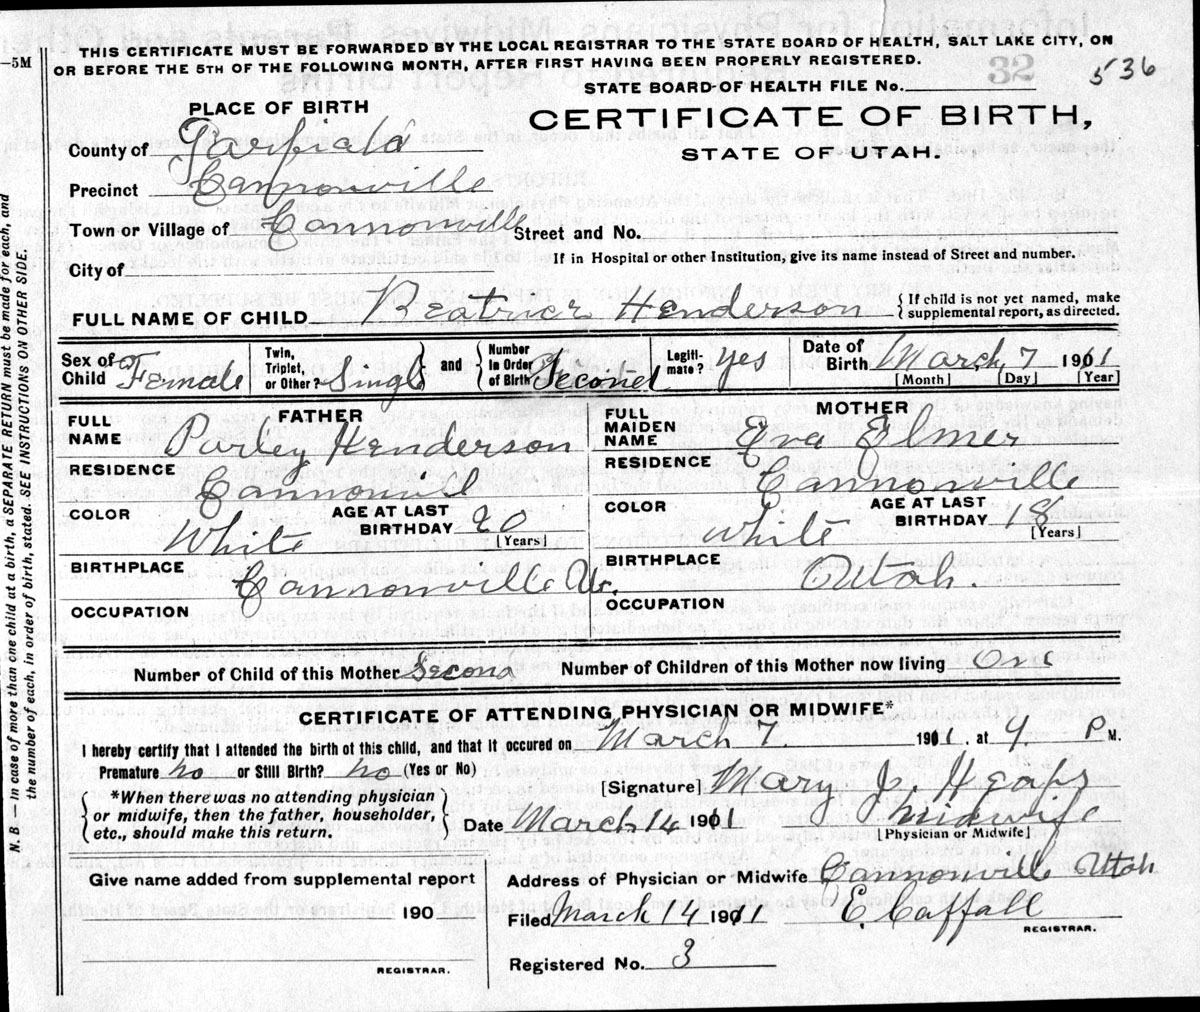 THIS CERTIFICATE MUST BE FORWARDED BY THE LOCAL REGISTRAR TO THE STATE BOARD OF HEALTH, SALT LAKE CITY, ON
—5M OR BEFORE THE 5TH OF THE FOLLOWING MONTH, AFTER FIRST HAVING BEEN PROPERLY REGISTERED.
32 536
STATE BOARD OF HEALTH FILE No.
PLACE OF BIRTH
CERTIFICATE OF BIRTH,
STATE OF UTAH.
County of Garfield
Precinct Cannonville
Town or Village of Cannonville Street and No.
If in Hospital or other Institution, give its name instead of Street and number.
City of
FULL NAME OF CHILD Beatrice Henderson { If child is not yet named, make supplemental report, as directed.
Sex of Child Female Twin, Triplet, or Other? Single } and { Number in Order of Birth Second Legitimate? yes Date of Birth March 7 1911
[Month] [Day] [Year]
FATHER MOTHER
FULL NAME Parley Henderson FULL MAIDEN NAME Eva Elmer
RESIDENCE Cannonvil RESIDENCE Cannonville
COLOR White AGE AT LAST BIRTHDAY 20 [Years] COLOR white AGE AT LAST BIRTHDAY 18 [Years]
BIRTHPLACE Cannonville Ut. BIRTHPLACE Utah.
OCCUPATION OCCUPATION
Number of Child of this Mother Second Number of Children of this Mother now living One
CERTIFICATE OF ATTENDING PHYSICIAN OR MIDWIFE*
I hereby certify that I attended the birth of this child, and that it occured on March 7. 1911. at 9. P M.
Premature? no or Still Birth? no (Yes or No)
[Signature] Mary J. Heaps
{ *When there was no attending physician or midwife, then the father, householder, etc., should make this return. }
Midwife
Date March 14 1911 [Physician or Midwife]
Give name added from supplemental report
Address of Physician or Midwife Cannonville Utah
190
Filed March 14 1911 E. Caffall
REGISTRAR.
Registered No. 3
REGISTRAR.
N. B.—In case of more than one child at a birth, a SEPARATE RETURN must be made for each, and
the number of each, in order of birth, stated. SEE INSTRUCTIONS ON OTHER SIDE.